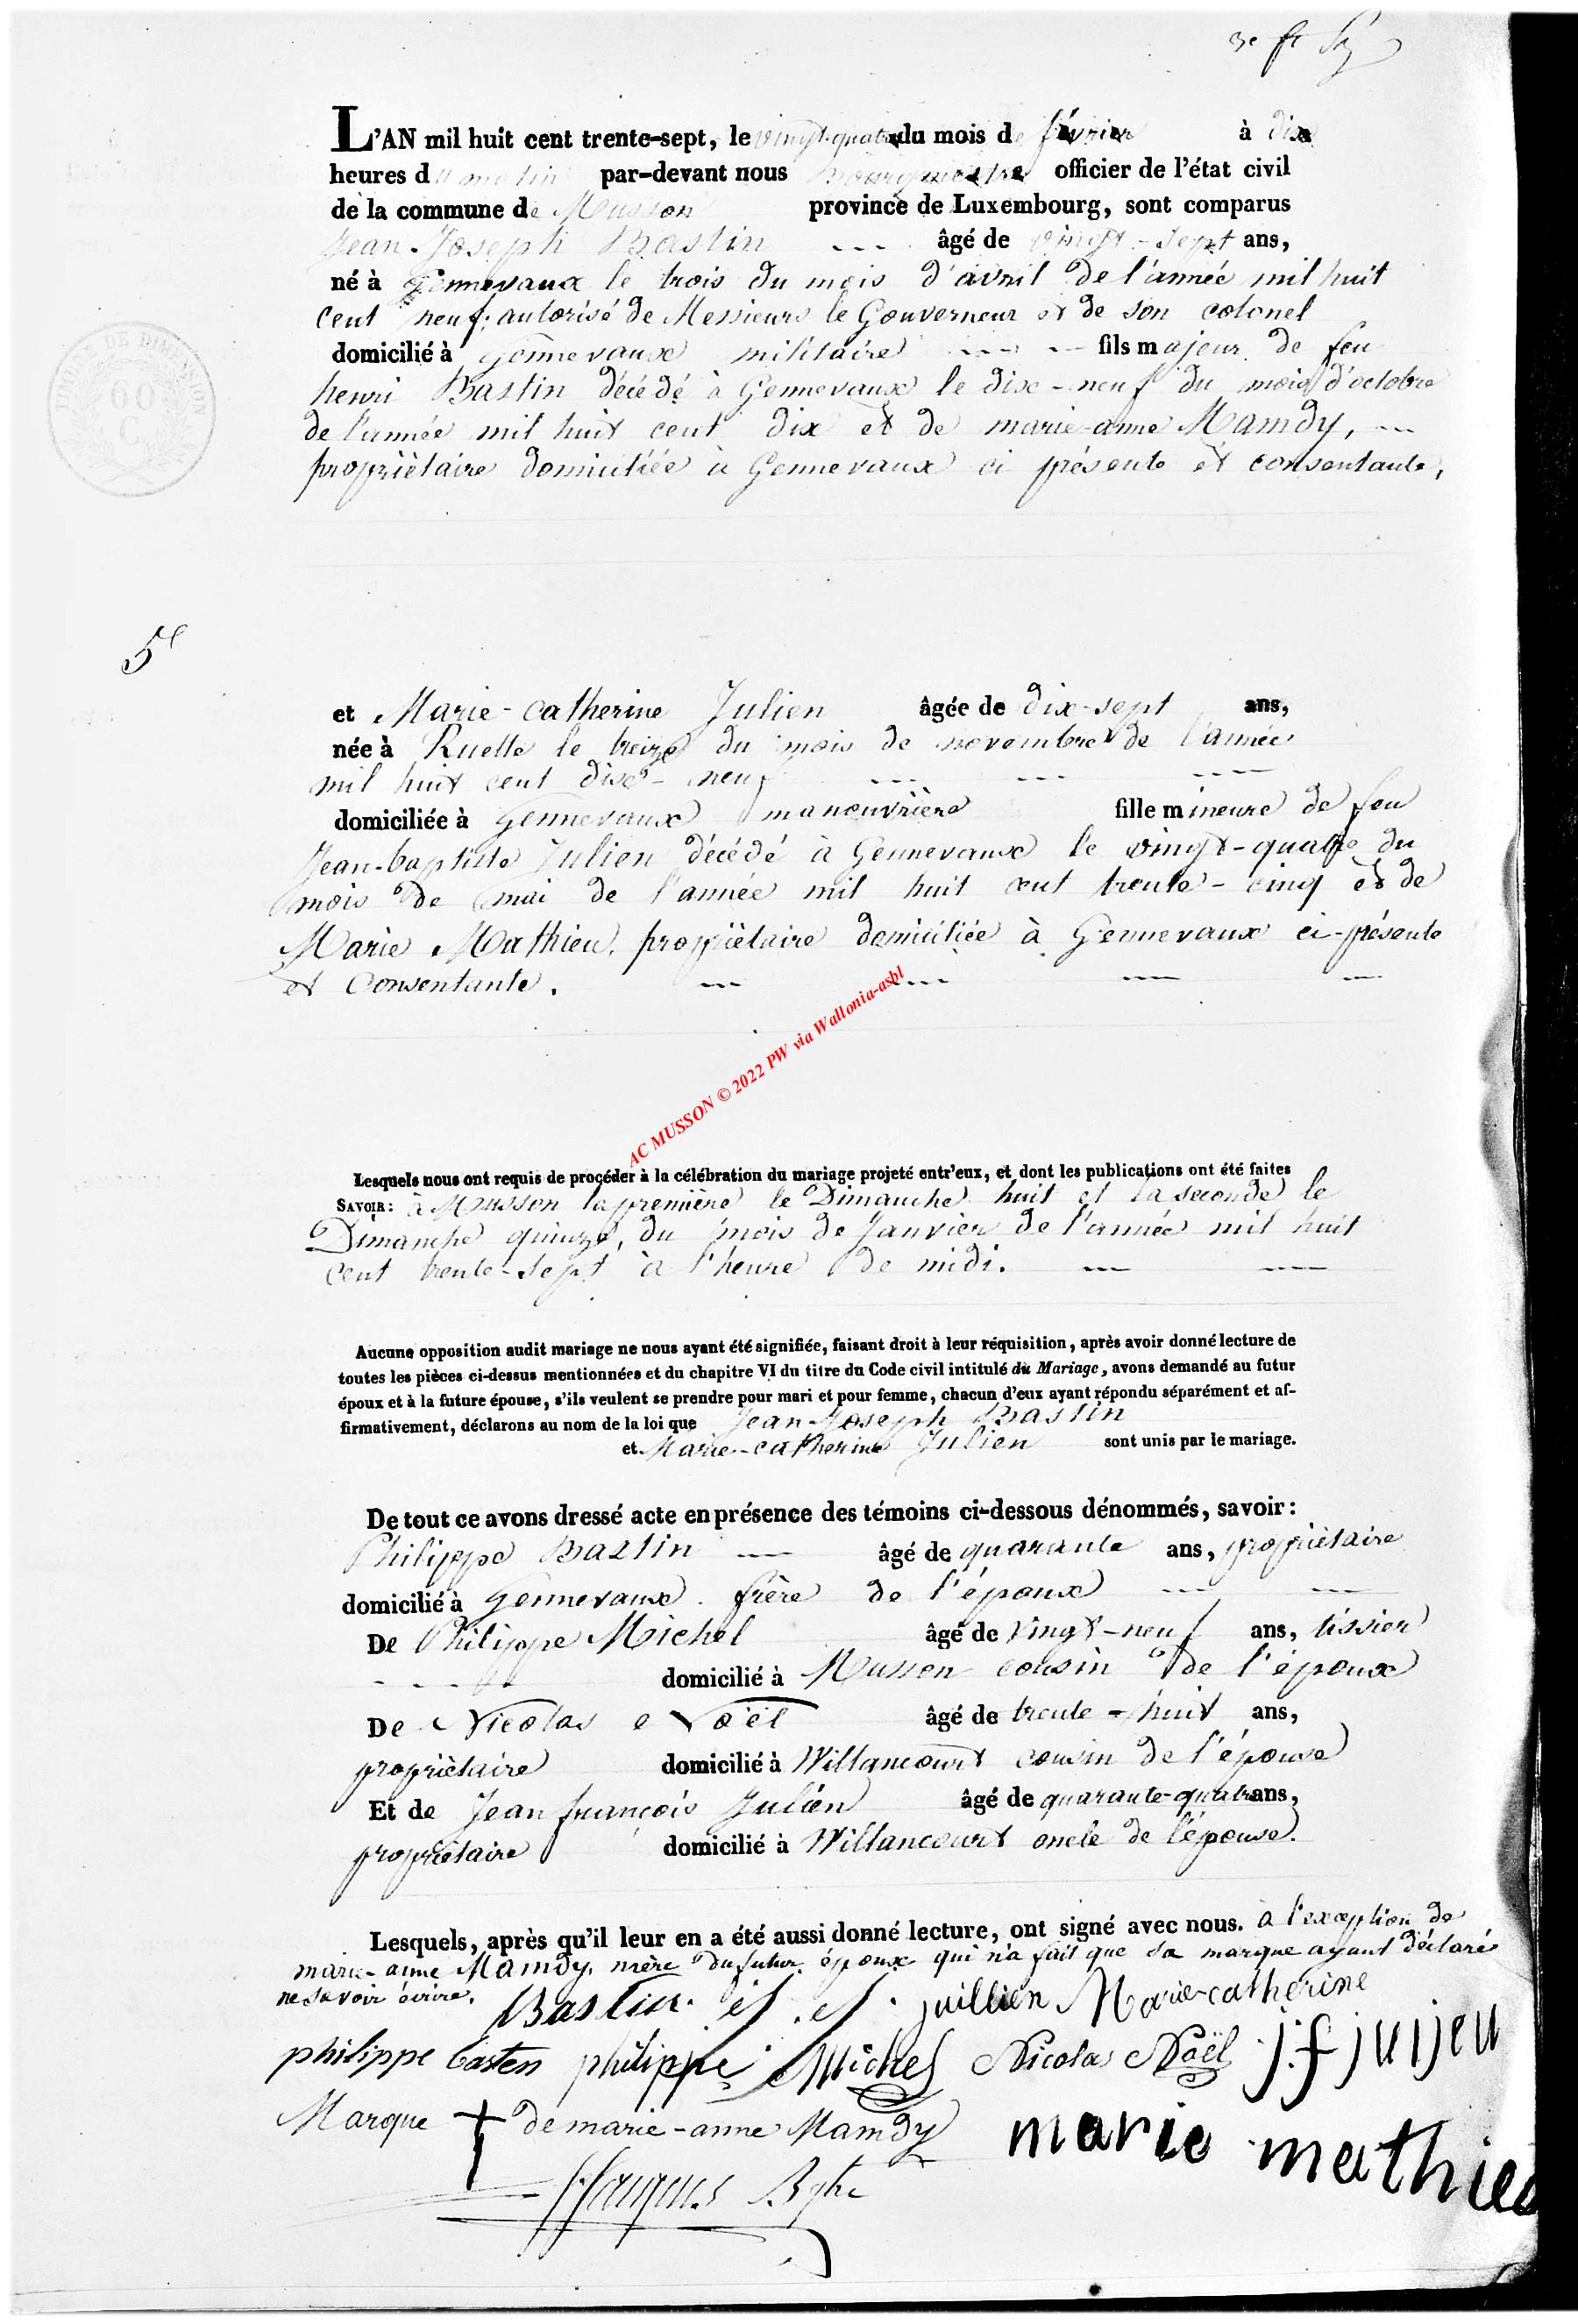 L'AN mil huit cent trente-sept, le vingt-quatre du mois de février à dix
heures du matin par-devant nous Bourgmestre officier de l'état civil
de la commune de Musson province de Luxembourg, sont comparus
Jean-Joseph Bastin --- âgé de vingt-sept ans,
né à Gennevaux le trois du mois d'avril de l'année mil huit
cent neuf; autorisé de Messieurs le Gouverneur et de son colonel
domicilié à Gennevaux militaire --- -- fils majeur de feu
henri Bastin décédé à Gennevaux le dix-neuf du mois d'octobre
de l'année mil huit cent dix et de marie-anne Mamdy, ---
propriètaire domiciliée à Gennevaux ci présente et consentante,
TIMBRE DE DIMENSION
60
C.
5e
et Marie-catherine Julien âgée de dix-sept ans,
née à Ruette le treize du mois de novembre de l'année
mil huit cent dix-neuf --- --- ---
domiciliée à Gennevaux manouvrière fille mineure de feu
Jean-baptiste Julien décédé à Gennevaux le vingt-quatre du
mois de mai de l'année mil huit cent trente-cinq et de
Marie Mathieu, propriètaire domiciliée à Gennevaux ci-présente
et Consentante. --- --- --- ---
AC MUSSON © 2022 PW via Wallonia-asbl
Lesquels nous ont requis de procéder à la célébration du mariage projeté entr'eux, et dont les publications ont été faites
SAVOIR: à Musson la première le Dimanche huit et la seconde le
Dimanche quinze, du mois de Janvier de l'année mil huit
cent trente-sept à l'heure de midi. --- ---
Aucune opposition audit mariage ne nous ayant été signifiée, faisant droit à leur réquisition, après avoir donné lecture de
toutes les pièces ci-dessus mentionnées et du chapitre VI du titre du Code civil intitulé du Mariage, avons demandé au futur
époux et à la future épouse, s'ils veulent se prendre pour mari et pour femme, chacun d'eux ayant répondu séparément et af-
firmativement, déclarons au nom de la loi que Jean-Joseph Bastin
et Marie-catherine Julien sont unis par le mariage.
De tout ce avons dressé acte en présence des témoins ci-dessous dénommés, savoir:
Philippe Bastin --- âgé de quarante ans, propriètaire
domicilié à Gennevaux. frère de l'époux --- ---
De Philippe Michel âgé de vingt-neuf ans, tissier
---- domicilié à Musson cousin de l'époux
De Nicolas Noël âgé de trente-huit ans,
propriètaire domicilié à Willancourt cousin de l'épouse
Et de Jean françois Julien âgé de quarante-quatre ans,
propriètaire domicilié à Willancourt oncle de l'épouse.
Lesquels, après qu'il leur en a été aussi donné lecture, ont signé avec nous. à l'exception de
marie-anne Mamdy, mère du futur époux qui n'a fait que sa marque ayant déclaré
ne savoir écrire.
Bastin juillien Marie-catherine
philippe basten philippe Michel Nicolas Noël j.f jujeu
Marque † de marie-anne Mamdy marie mathieu